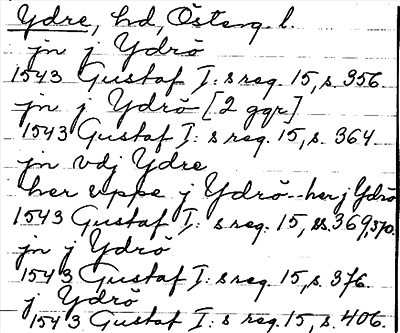 Ydre, hd, Österg. l.
jn j Ydrö
1543 Gustaf I:s reg. 15, s. 356.
jn j Ydrö [2 ggr]
1543 Gustaf I:s reg. 15, s. 364.
jn vdj Ydre
her uppe j Ydrö - her j Ydrö
1543 Gustaf I:s reg. 15, ss. 369, 370.
jn j Ydrö
1543 Gustaf I:s reg. 15, s. 376.
j Ydrö
1543 Gustaf I:s reg. 15, s. 406.